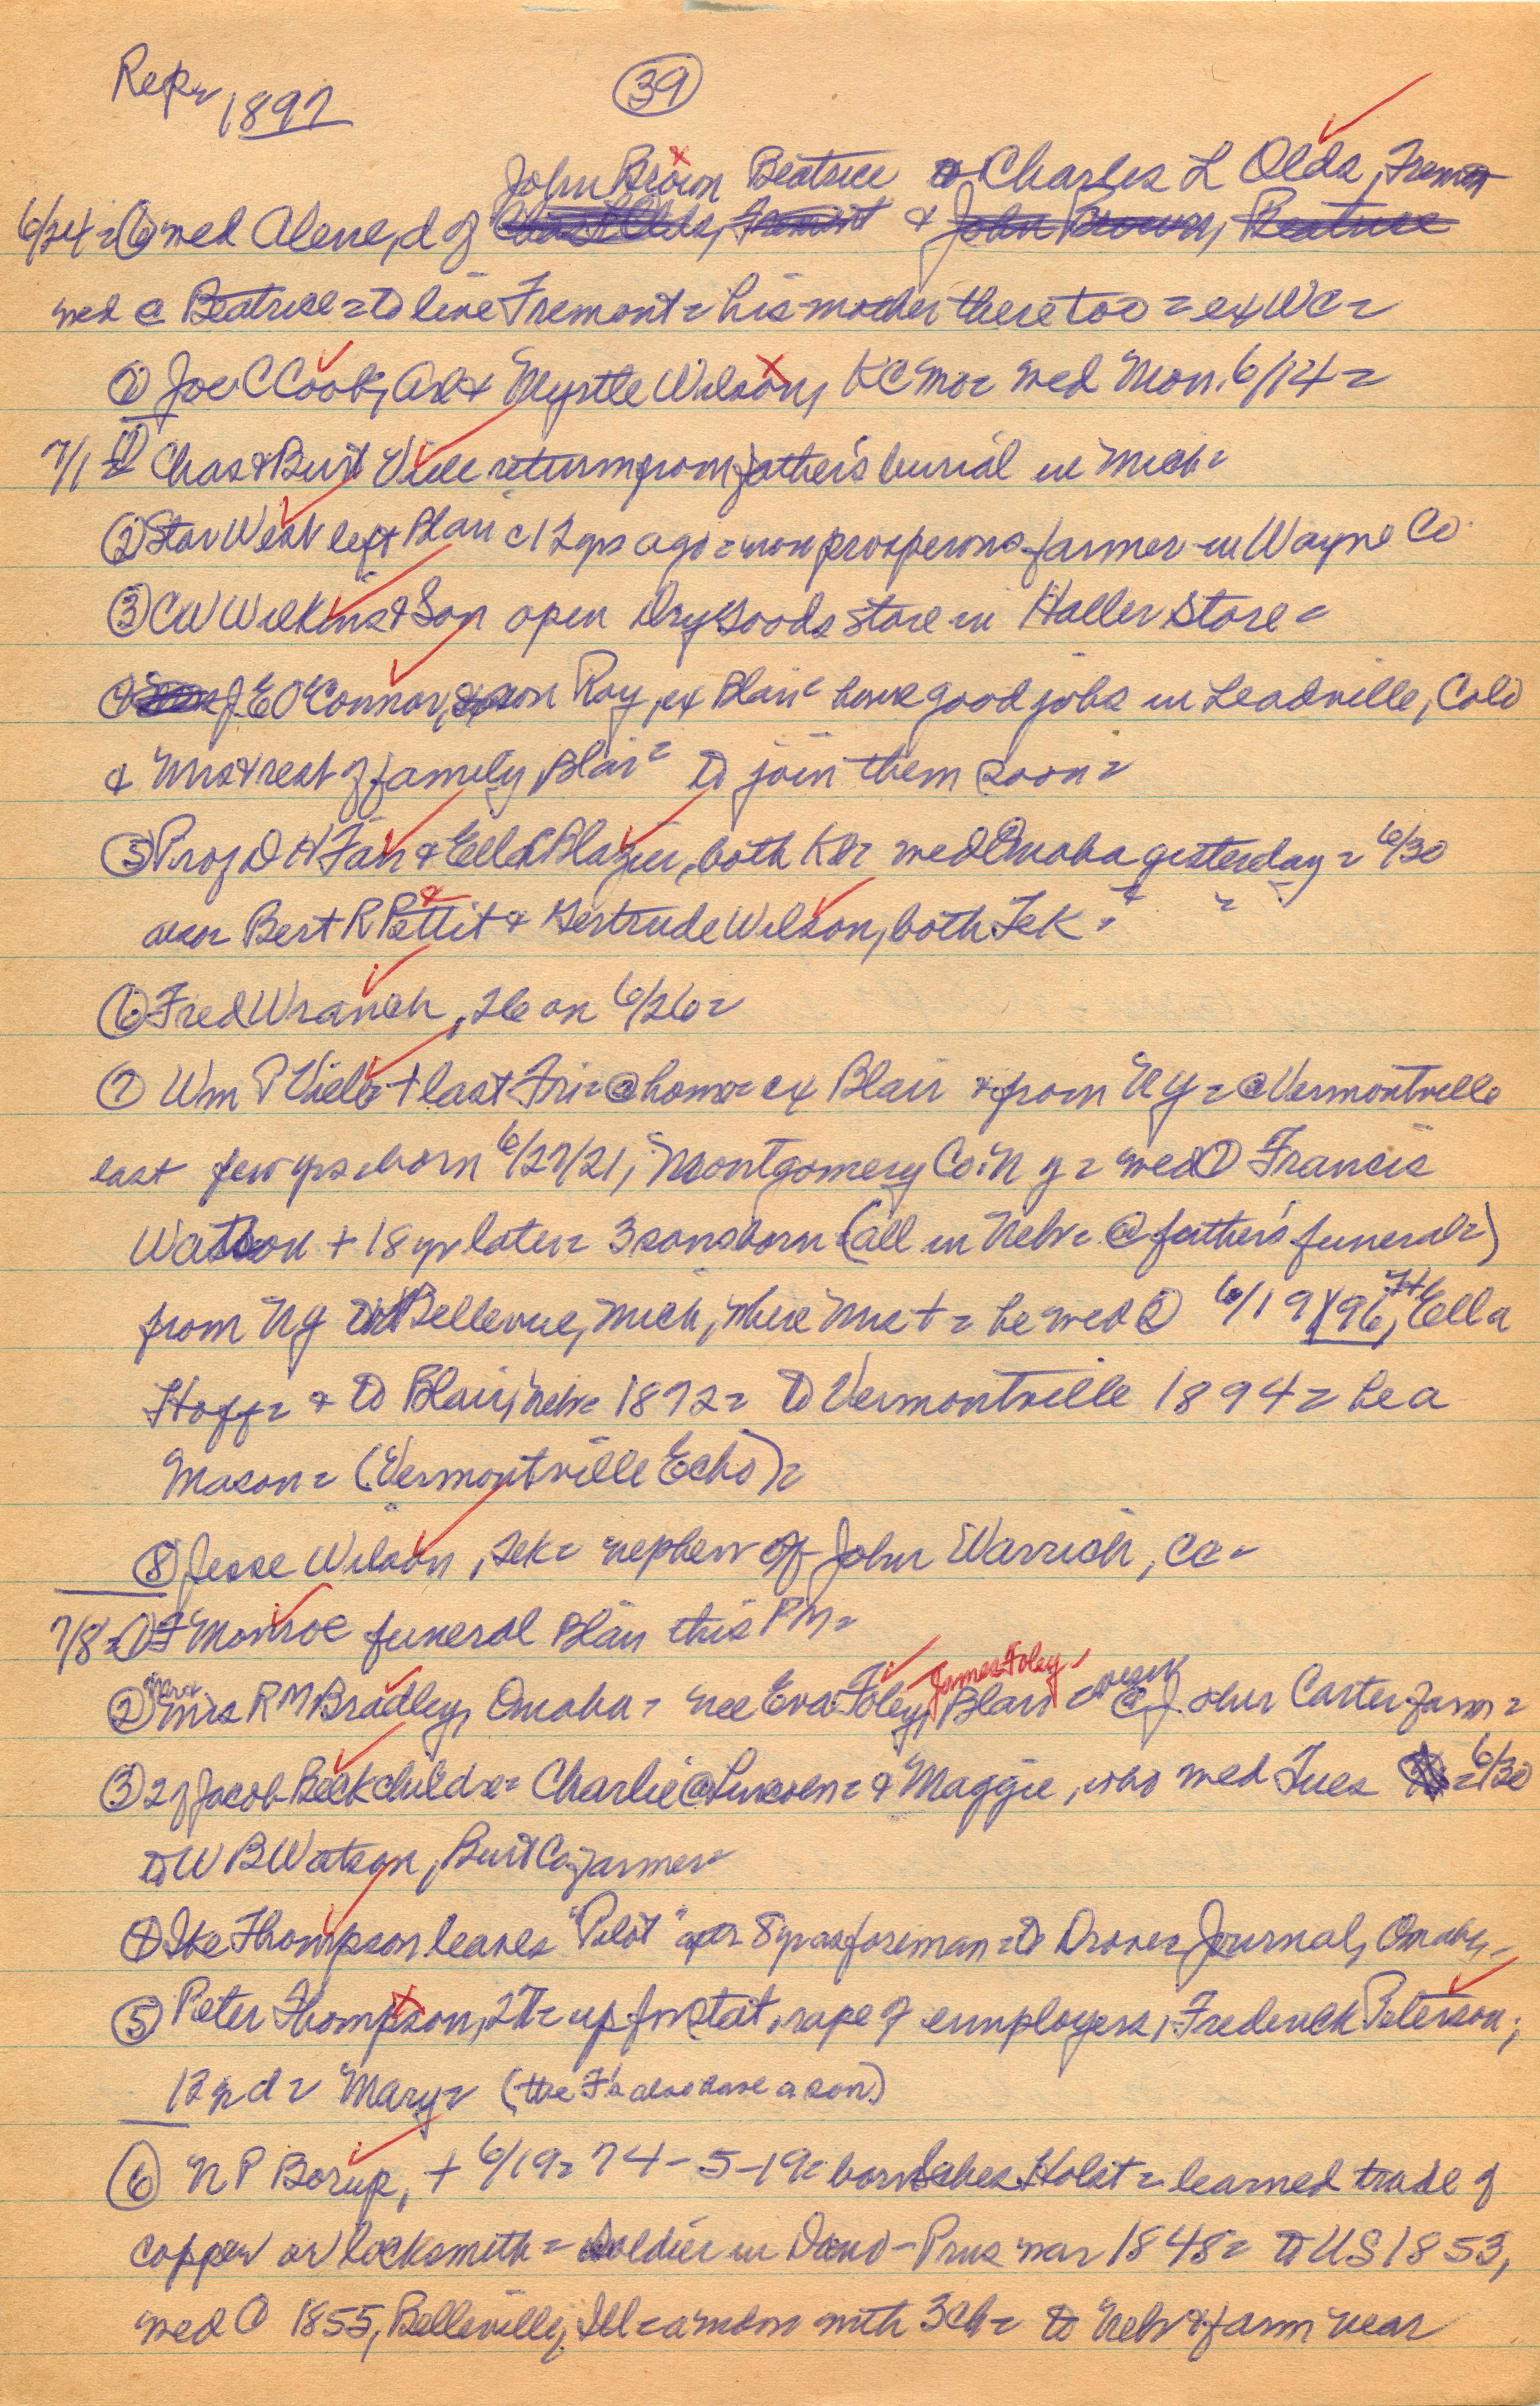 Repr 1897 (39)
John Brown Beatrice & Charles L Olds, Fremont
6/24 = ⑥ wed Alene, d of Chas L Olds, Fremont & John Brown, Beatrice
wed @ Beatrice = to live Fremont = his mother there too = ex WC =
② Joe C Cook, & Myrtle Wilson, KC Mo = wed Mon. 6/14 =
7/1 = ① Chas & Burt Viele return from father's burial in Mich =
② Star West left Blair c 12 yrs ago = now prosperous farmer in Wayne Co
③ CW Wilkins & Son open Dry Goods store in Haller Store =
④ J E O'Connor, & son Roy, ex Blair = have good jobs in Leadville, Colo
& Mrs & rest of family, Blair = to join them soon =
⑤ Prof D H Fair & Ella Blazier, both K = wed Omaha yesterday = 6/30
also = Bert R Pettit & Gertrude Wilson, both Tek = " "
⑥ Fred Wranch, 26 on 6/26 =
⑦ Wm P Viele + last Fri = @ home = ex Blair & from NY = @ Vermontville
last few yrs = born 6/27/21, Montgomery Co. NY = wed ① Francis
Watson + 18 yr later = 3 sons born (all in Nebr = @ father's funeral =)
from NY to Bellevue, Mich, where Mrs + = he wed ② 6/19/96, Ella
Hoff = & to Blair, Nebr = 1872 = to Vermontville 1894 = he a
Mason = (Vermontville Echo) =
⑧ Jesse Wilson, Tek = nephew of John Warrick, CC =
7/8 = ① F Monroe funeral Blair this PM =
② Mrs R M Bradley, Omaha = nee Eva Foley, James Foley, Blair = @ John Carter farm =
③ 2 of Jacob Beck child = Charlie @ = & Maggie, who wed Tues = 6/30
to W B Watson, Burt Co farmer =
④ Ike Thompson leaves "Pilot" after 8 yr as foreman = to Drover Journal, Omaha =
⑤ Peter Thompson, = up for stat. rape of employers, Frederick Peterson,
12 yr d = Mary = (the also have a son)
⑥ N P Borup, + 6/19 = 74-5-19 = born Holst = learned trade of
copper or locksmith = soldier in Dano-Prus war 1848 = to US 1853,
wed @ 1855, Belleville, Ill = a widow with 3 ch = to Nebr & farm near